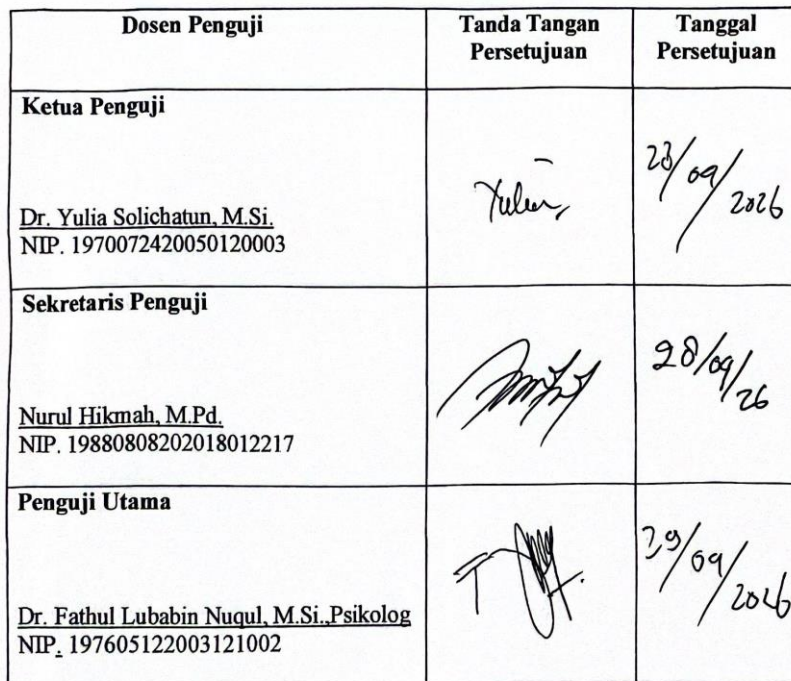 Dosen Penguji
Tanda Tangan
Persetujuan
Tanggal
Persetujuan
Ketua Penguji
Dr. Yulia Solichatun, M.Si.
NIP. 1970072420050120003
28/09/2026
Sekretaris Penguji
Nurul Hikmah, M.Pd.
NIP. 19880808202018012217
28/09/26
Penguji Utama
Dr. Fathul Lubabin Nuqul, M.Si.,Psikolog
NIP. 197605122003121002
29/09/2026